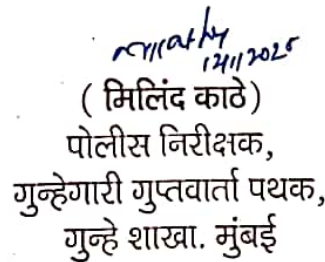 ( मिलिंद काठे)
पोलीस निरीक्षक,
गुन्हेगारी गुप्तवार्ता पथक,
गुन्हे शाखा. मुंबई